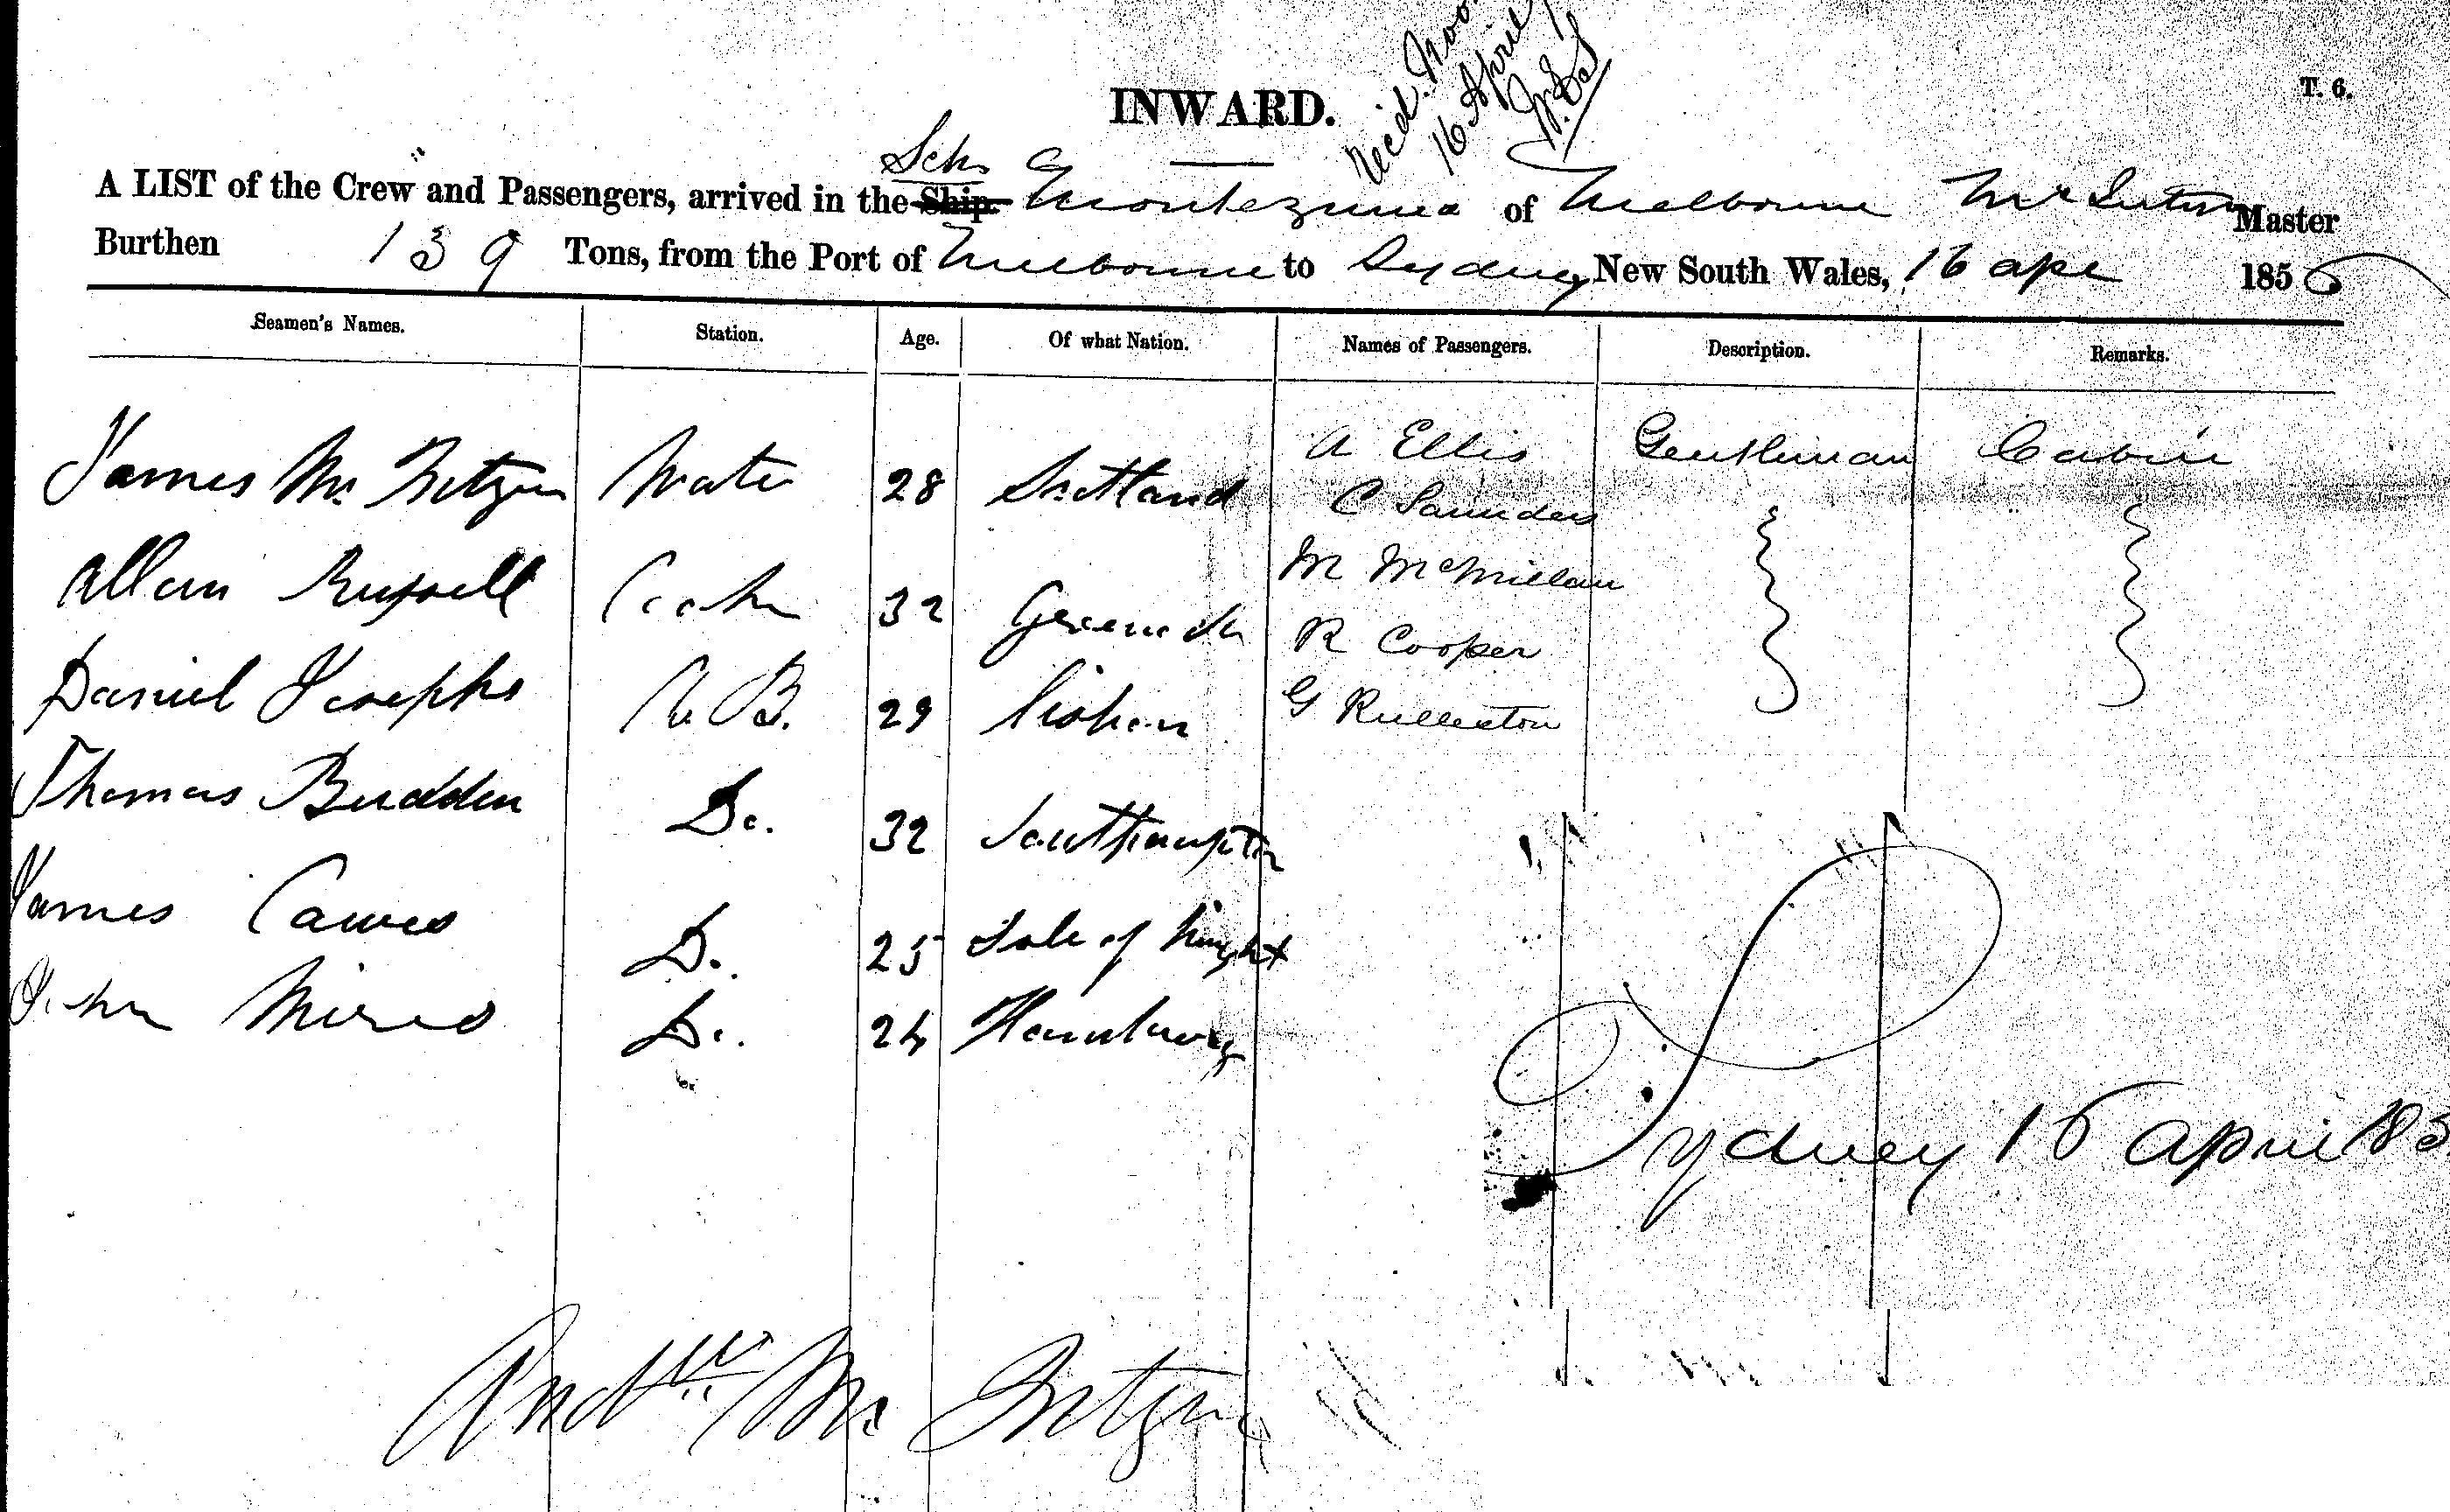 Rec'd. Noo
16 April
INWARD.
T. 6.
Schr
A LIST of the Crew and Passengers, arrived in the Ship Montezuma of Melbourne McIntyre Master
Burthen 139 Tons, from the Port of Melbourne to Sydney New South Wales, 16 Apl 1856
Seamen's Names. Station. Age. Of what Nation. Names of Passengers. Description. Remarks.
James Mc Intyre Mate 28 Scotland A Ellis Gentleman Cabin
C Saunders
Allan Russell Cook 32 Greenock M McMillan
R Cooper
Daniel Josephs A.B. 29 Lisbon G Rulleston
Thomas Budden Do. 32 Southampton
James Cawes Do. 25 Isle of Wight
John Miers Do. 24 Hamburg
Sydney 16 April 185
Andw Mc Intyre